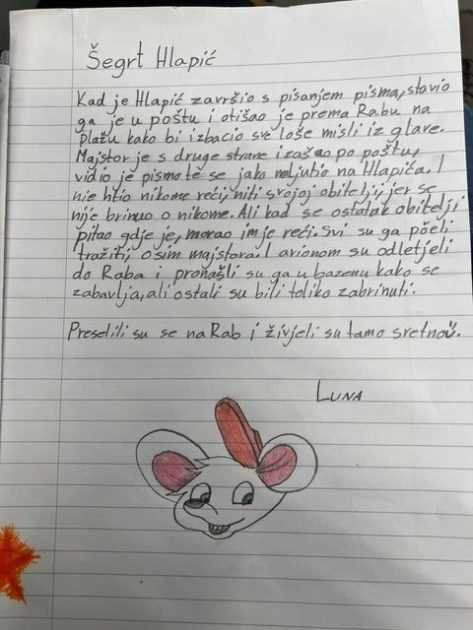 Šegrt Hlapić
Kad je Hlapić završio s pisanjem pisma, stavio
ga je u poštu i otišao je prema Rabu na
plažu kako bi izbacio sve loše misli iz glave.
Majstor je s druge strane izašao po poštu,
vidio je pismo te se jako naljutio na Hlapića. I
nie htio nikome reći, niti svojoj obitelji, jer se
nije brinuo o nikome. Ali kad se ostatak obitelji
pitao gdje je, morao im je reći. Svi su ga počeli
tražiti, osim majstora. I avionom su odletjeli
do Raba i pronašli su ga u bazenu kako se
zabavlja, ali ostali su bili toliko zabrinuti.
Preselili su se na Rab i živjeli su tamo sretno.
LUNA